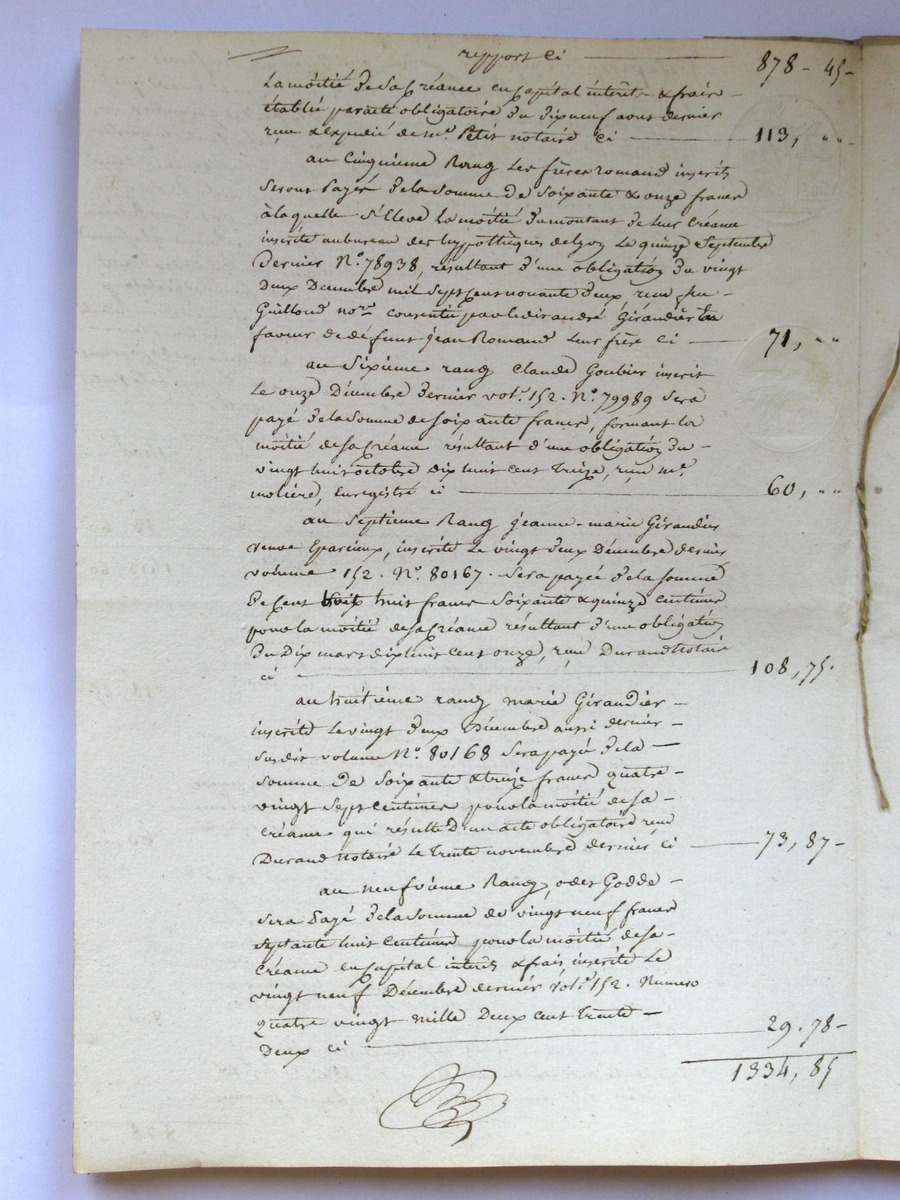 report ci 878 - 45 -
La moitié de sa Créance en Capital interets & frais
établie par acte obligatoire du dix neuf aout dernier
reçu & expedié de Me. Petit notaire ci 113, " "
au Cinquieme Rang Les frères romand inscrits
seront Payés de la somme de soixante & onze francs
à laquelle S'Eleve La moitié du montant de Leur Créance
inscrite au bureau des hypotheques de Lyon Le quinze Septembre
Dernier No. 78938, résultant d'une obligation du vingt
Deux Decembre mil Sept Cent nonante deux, reçue
Guilloud nore. consentie par andré Girandier en
faveur de défunt jean Romand Leur frère ci 71, " "
au Sixieme rang Claude Goubier inscrit
Le onze Décembre dernier vol. 152. No. 79989 sera
payé de la Somme de soixante francs, formant la
moitié de sa Créance résultant d'une obligation du -
vingt huit octobre dix huit cent treize, reçu Me.
molière, Enregistré ci 60, " "
au Septieme Rang jeanne-marie Girandier
veuve Eparcieux, inscrite Le vingt deux Décembre dernier
volume 152. No. 80167. Sera payée de la somme
De Cent huit francs Soixante & quinze Centimes
pour la moitié de sa Créance résultant d'une obligation
du Dix mars dix huit cent onze, reçu Durand Notaire
ci 108, 75.
au huitieme rang marie Girandier -
inscrite Le vingt deux Décembre aussi dernier -
susdit volume No. 80168 Sera payé de la -
somme De Soixante & treize francs quatre -
vingt Sept Centimes pour la moitié de sa -
créance qui résulte D'un acte obligatoire reçu
Durand Notaire Le Trente novembre dernier ci 73, 87 -
au neufvieme Rang, odes Godde -
sera Payé de la Somme de vingt neuf francs
septante huit Centimes pour la moitié de sa -
Créance en Capital interets & frais inscrite Le
vingt neuf Décembre dernier vol. 152. Numero
quatre vingt mille Deux cent trente -
Deux ci 29. 78 -
1334, 85